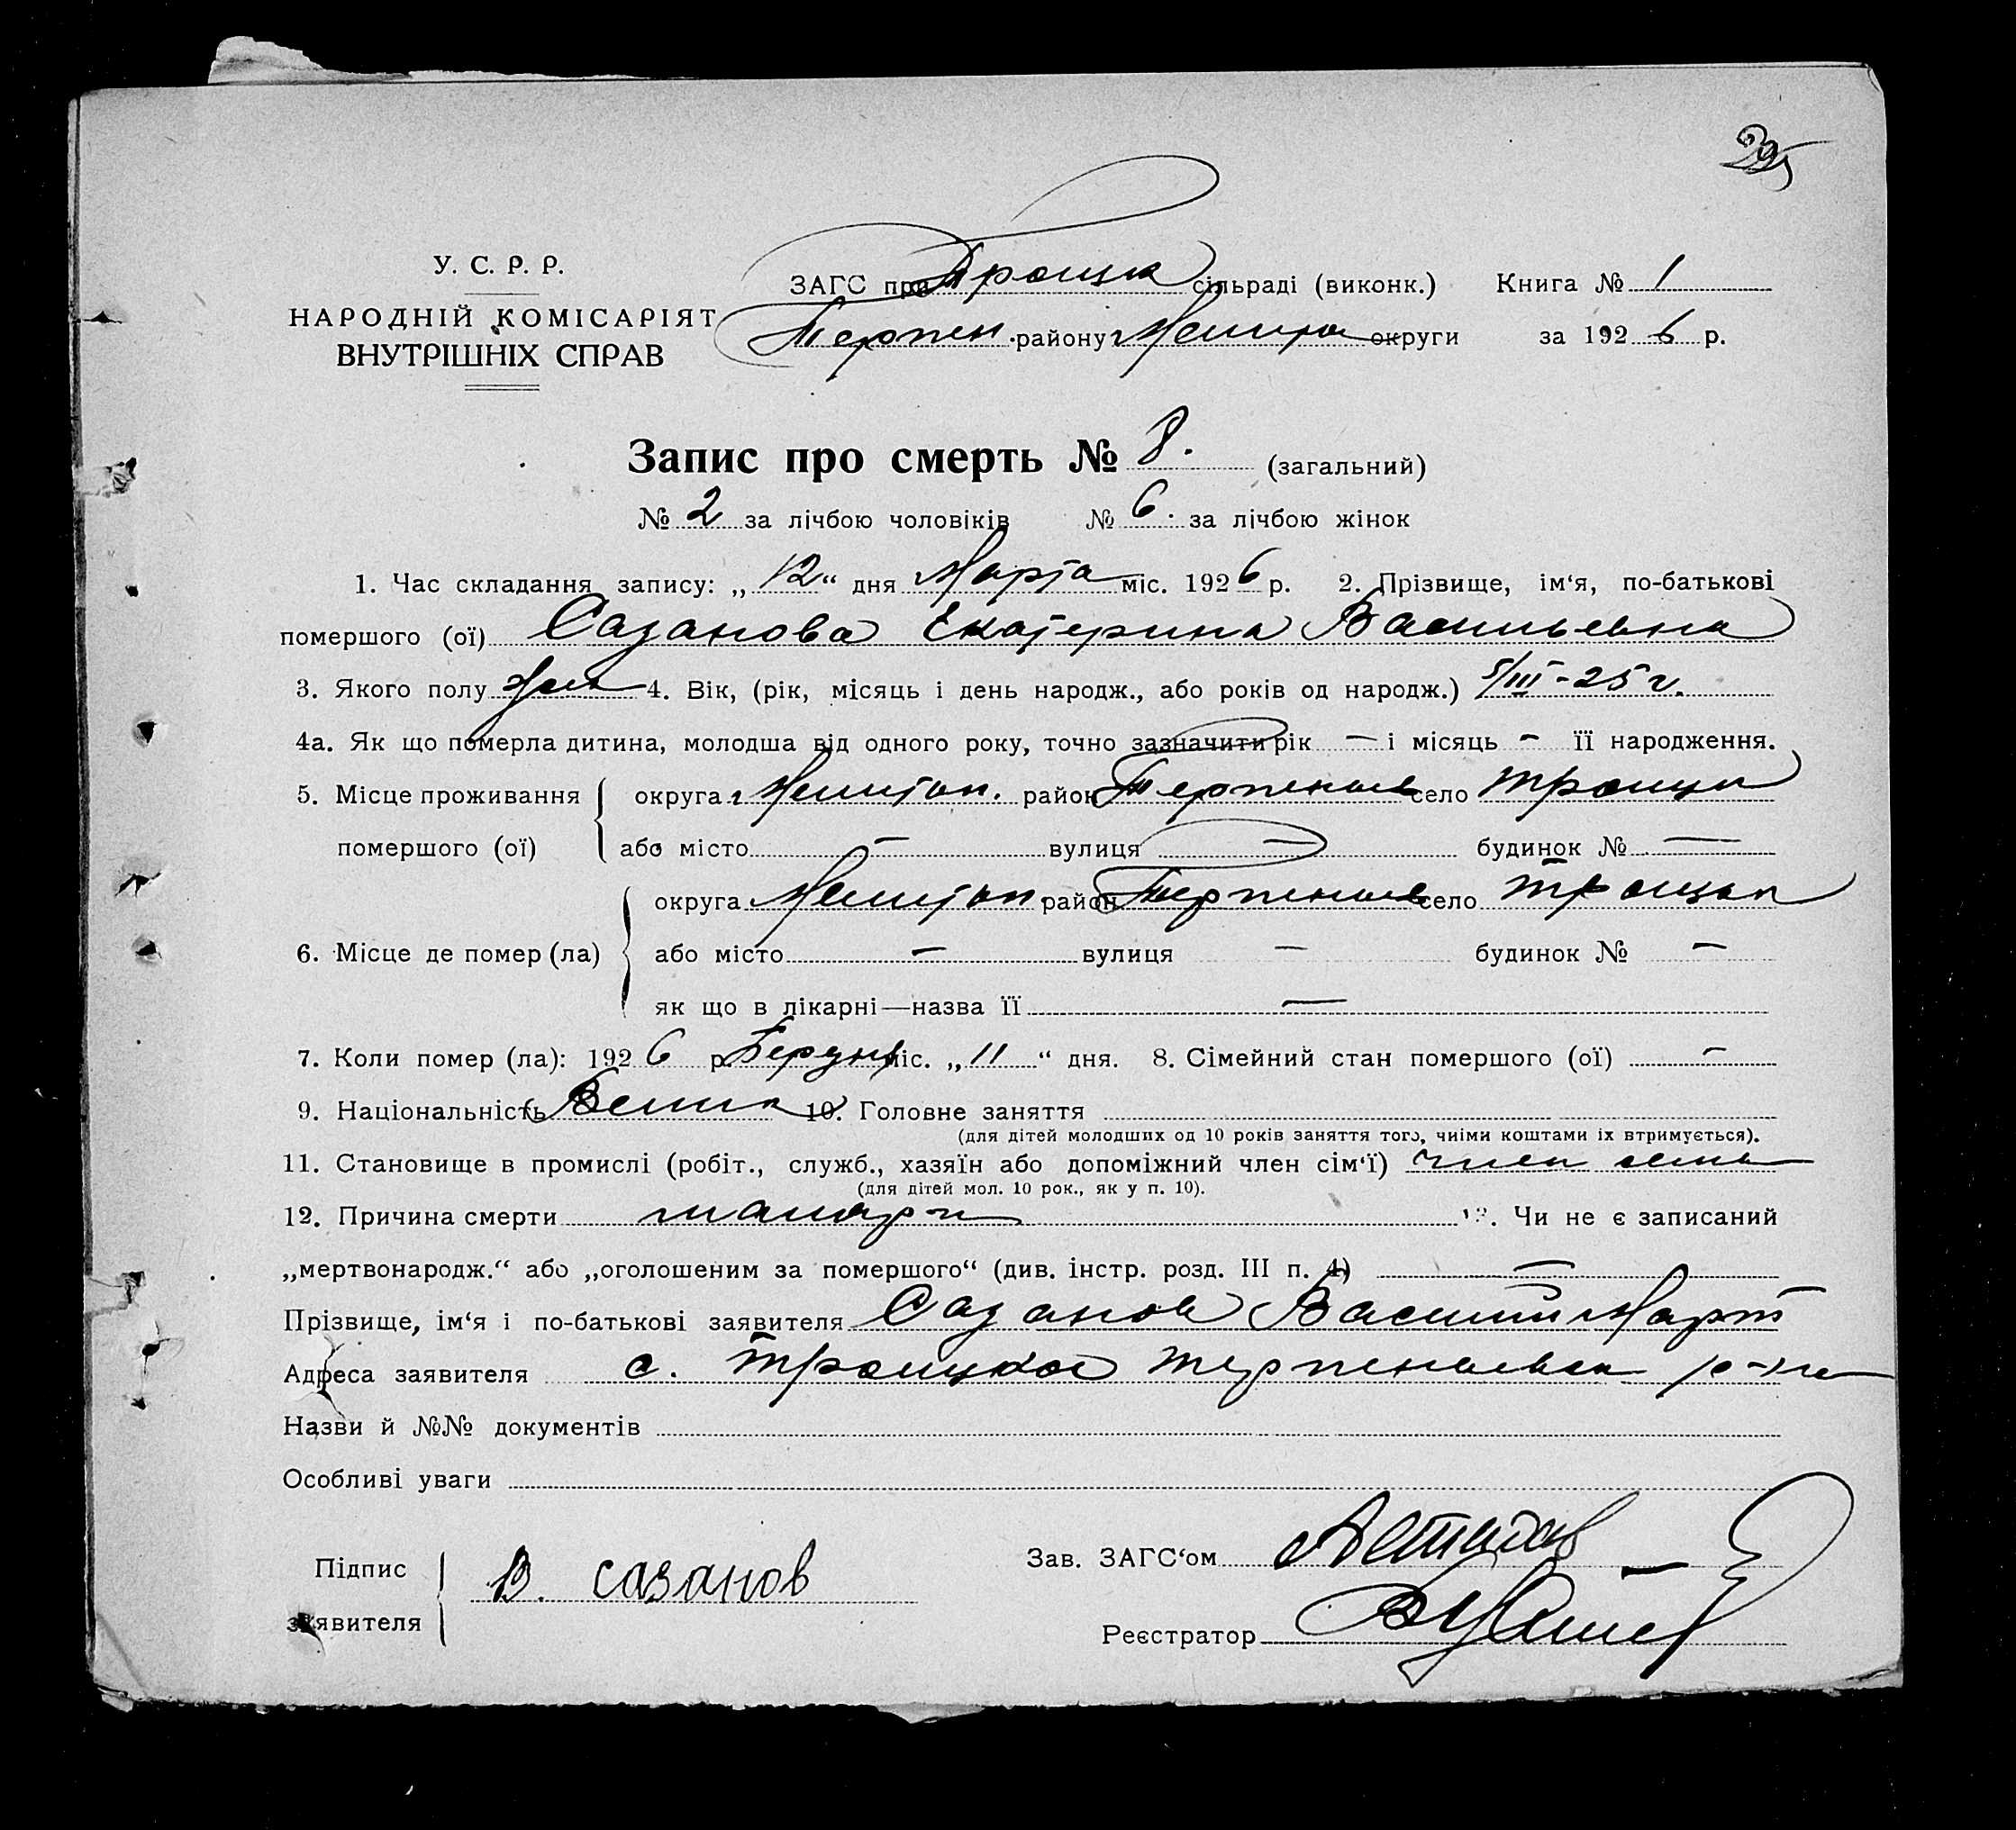 У. С. Р. Р.
НАРОДНІЙ КОМІСАРІЯТ
ВНУТРІШНІХ СПРАВ
ЗАГС при Троицк сільраді (виконк.) Книга № 1
Терпен. району округи за 1926 р.
Запис про смерть № 8. (загальний)
№ 2 за лічбою чоловіків № 6. за лічбою жінок
1. Час складання запису: „12“ дня Марта міс. 1926 р. 2. Прізвище, ім‘я, по-батькові
помершого (ої) Сазанова Екатерина Васильевна
3. Якого полу жен 4. Вік, (рік, місяць і день народж., або років од народж.) 5/III-25 г.
4а. Як що померла дитина, молодша від одного року, точно зазначити рік — і місяць - її народження.
5. Місце проживання округа Мелитоп. район село
помершого (ої) або місто — вулиця — будинок № —
округа Мелитоп район село
6. Місце де помер (ла) або місто — вулиця — будинок № —
як що в лікарні—назва її —
7. Коли помер (ла): 1926 р. міс. „11“ дня. 8. Сімейний стан помершого (ої) —
9. Національність 10. Головне заняття
(для дітей молодших од 10 років заняття того, чиїми коштами їх втримується).
11. Становище в промислі (робіт., служб., хазяїн або допоміжний член сім‘ї) член семьи
(для дітей мол. 10 рок., як у п. 10).
12. Причина смерти 13. Чи не є записаний
„мертвонародж.“ або „оголошеним за помершого“ (див. інстр. розд. III п. 4) —
Прізвище, ім‘я і по-батькові заявителя Сазанов Василий Март
Адреса заявителя с. Троицкое р-на
Назви й №№ документів
Особливі уваги
Підпис
заявителя
В. сазанов
Зав. ЗАГС‘ом
Реєстратор